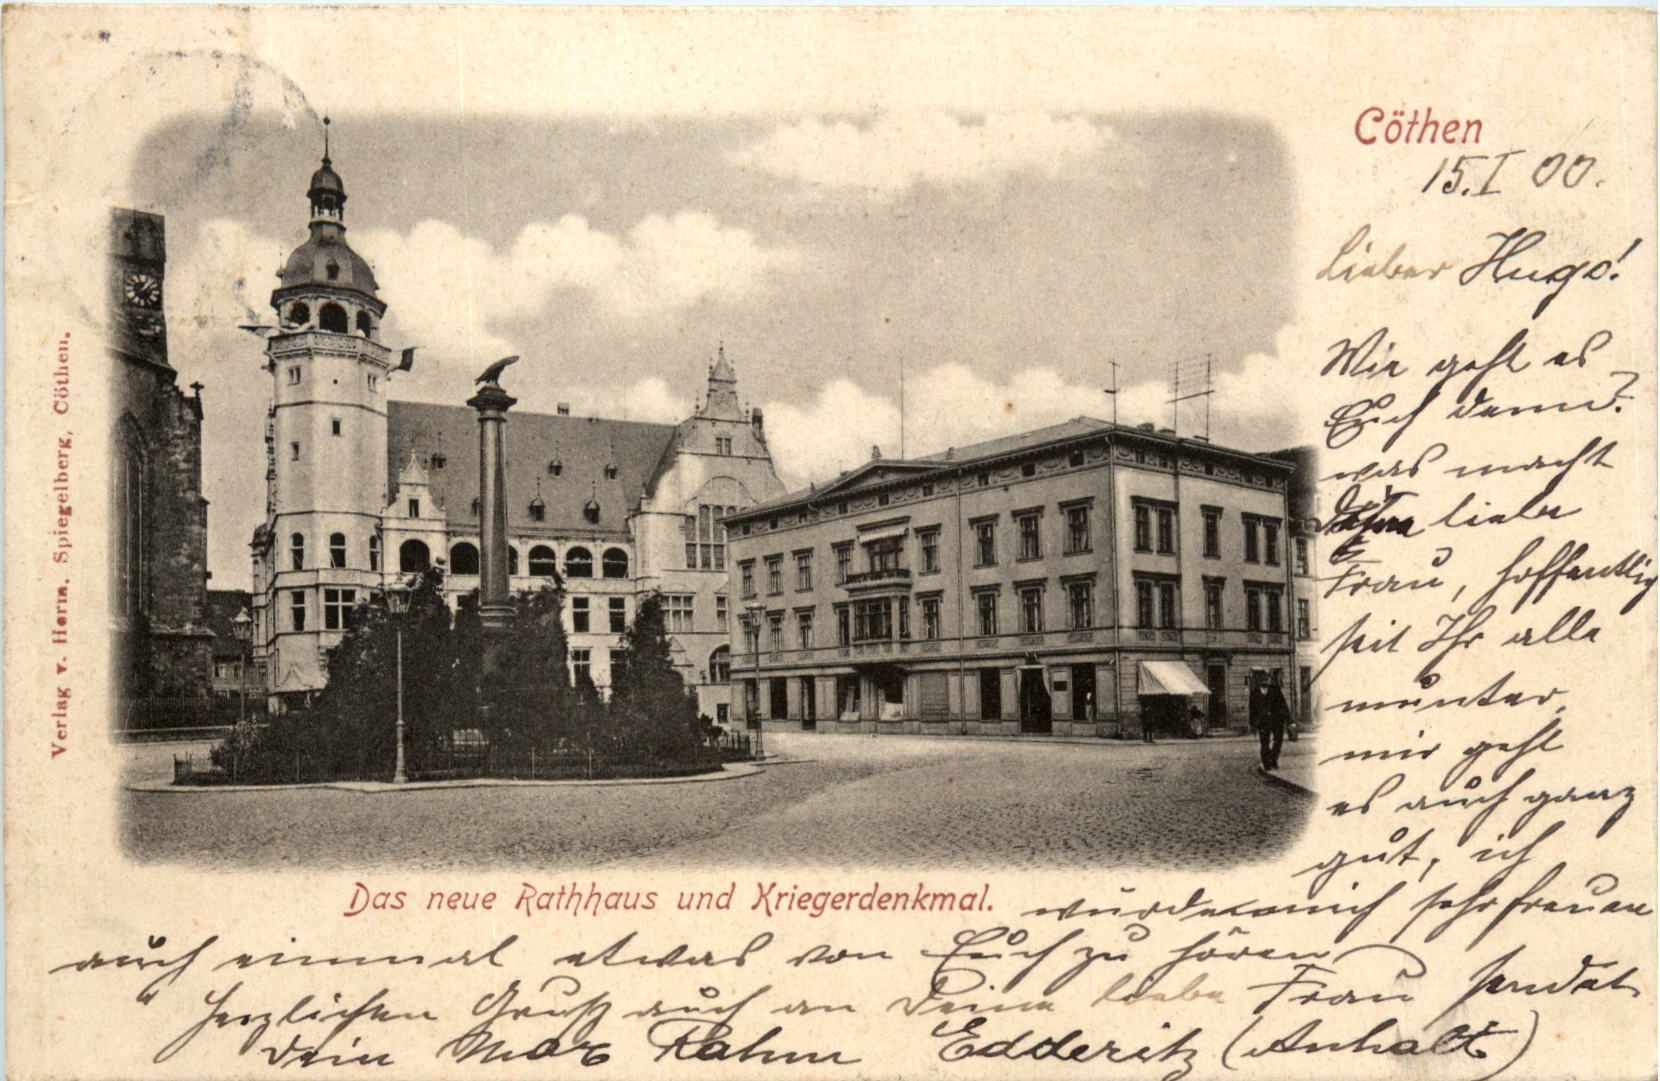 Cöthen
15.I 00.
Lieber Hugo!
Wie geht es
Euch denn?
was macht
Deine liebe
Frau, hoffentlich
seit Ihr alle
munter,
mir geht
es auch ganz
gut, ich
Das neue Rathhaus und Kriegerdenkmal.
würde mich sehr freuen
auch einmal etwas von Euch zu hören
Herzlichen Gruß auch an Deine liebe Frau sendet
Dein Max Rahm Edderitz (Anhalt)
Verlag v. Herm. Spiegelberg, Cöthen.